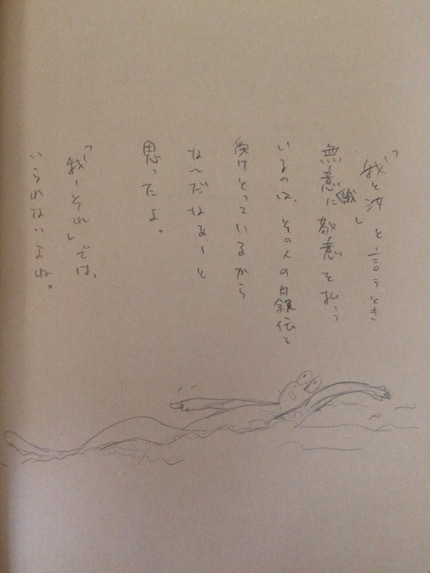 「我と汝」と言うとき
無意識に敬意を払う
いるのは、その人の自叙伝を
受けとっているから
な〜だなあ〜と
思ったよ。
「我〜それ」では、
いられないよね。